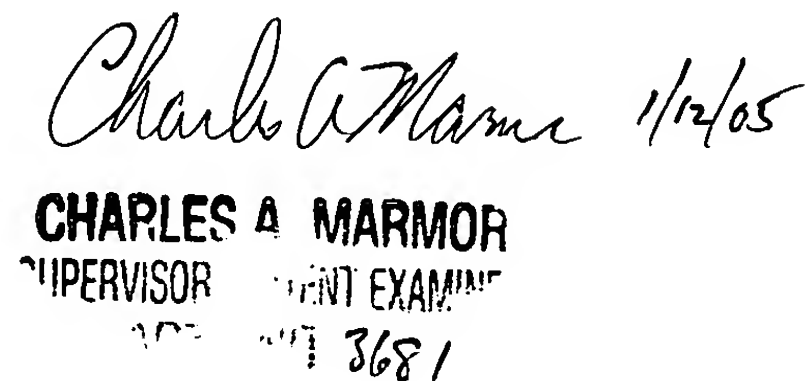 Charles A Marmor 1/12/05
CHARLES A MARMOR
SUPERVISOR EXAMINE
3681